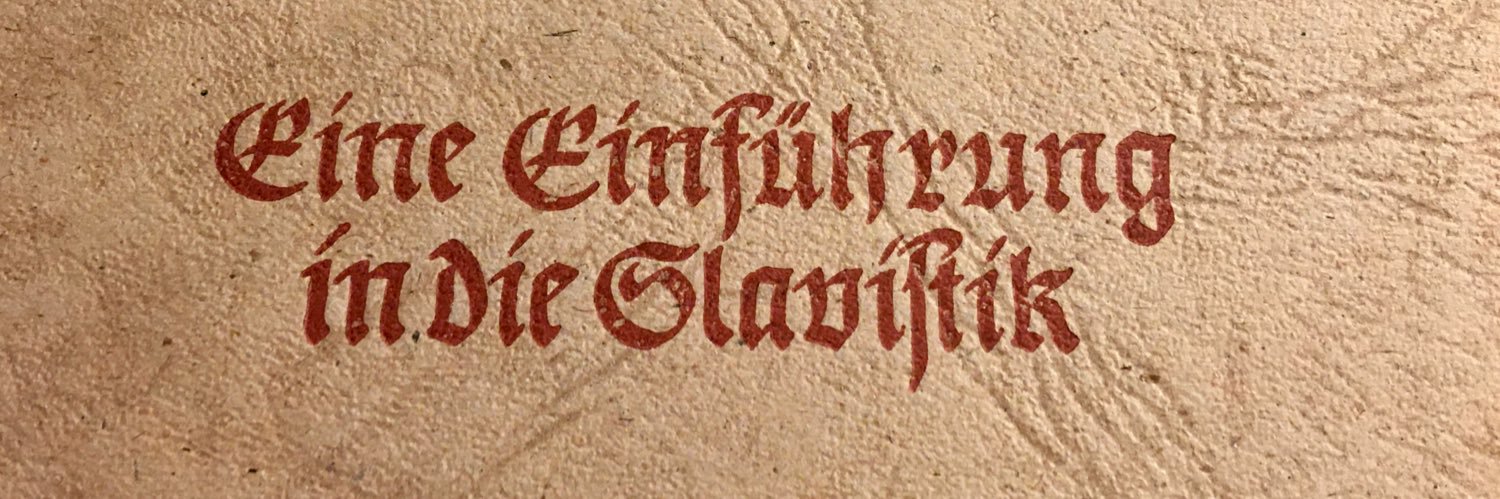 Eine Einführung
in die Slaviſtik